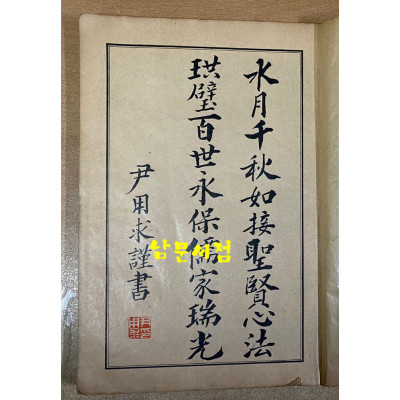 水月千秋如接聖賢心法
珙璧百世永保儒家瑞光
尹用求謹書
남문서점